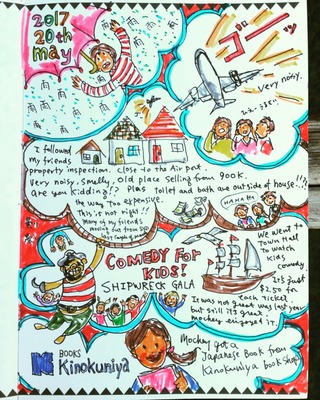 2017
20th
may
雨 雨 雨 雨
ゴーッ
Very noisy.
I followed
my friends
property inspection. Close to the Air port
Very noisy, smelly, old place selling from 900K.
Are you kidding!? Plus toilet and bath are outside of house...!!
the way Too expensive.
This is not right!!
Many of my friends
moving out from
HAHAHA
We went to
Town Hall
To watch
kids
comedy.
It's just
$2.50 for
each ticket.
It was not great was last year
but still it's great.
mochey enjoyed it.
COMEDY FOR
KIDS!
SHIPWRECK GALA
BOOKS
Kinokuniya
Mochey got a
Japanese Book from
Kinokuniya book shop